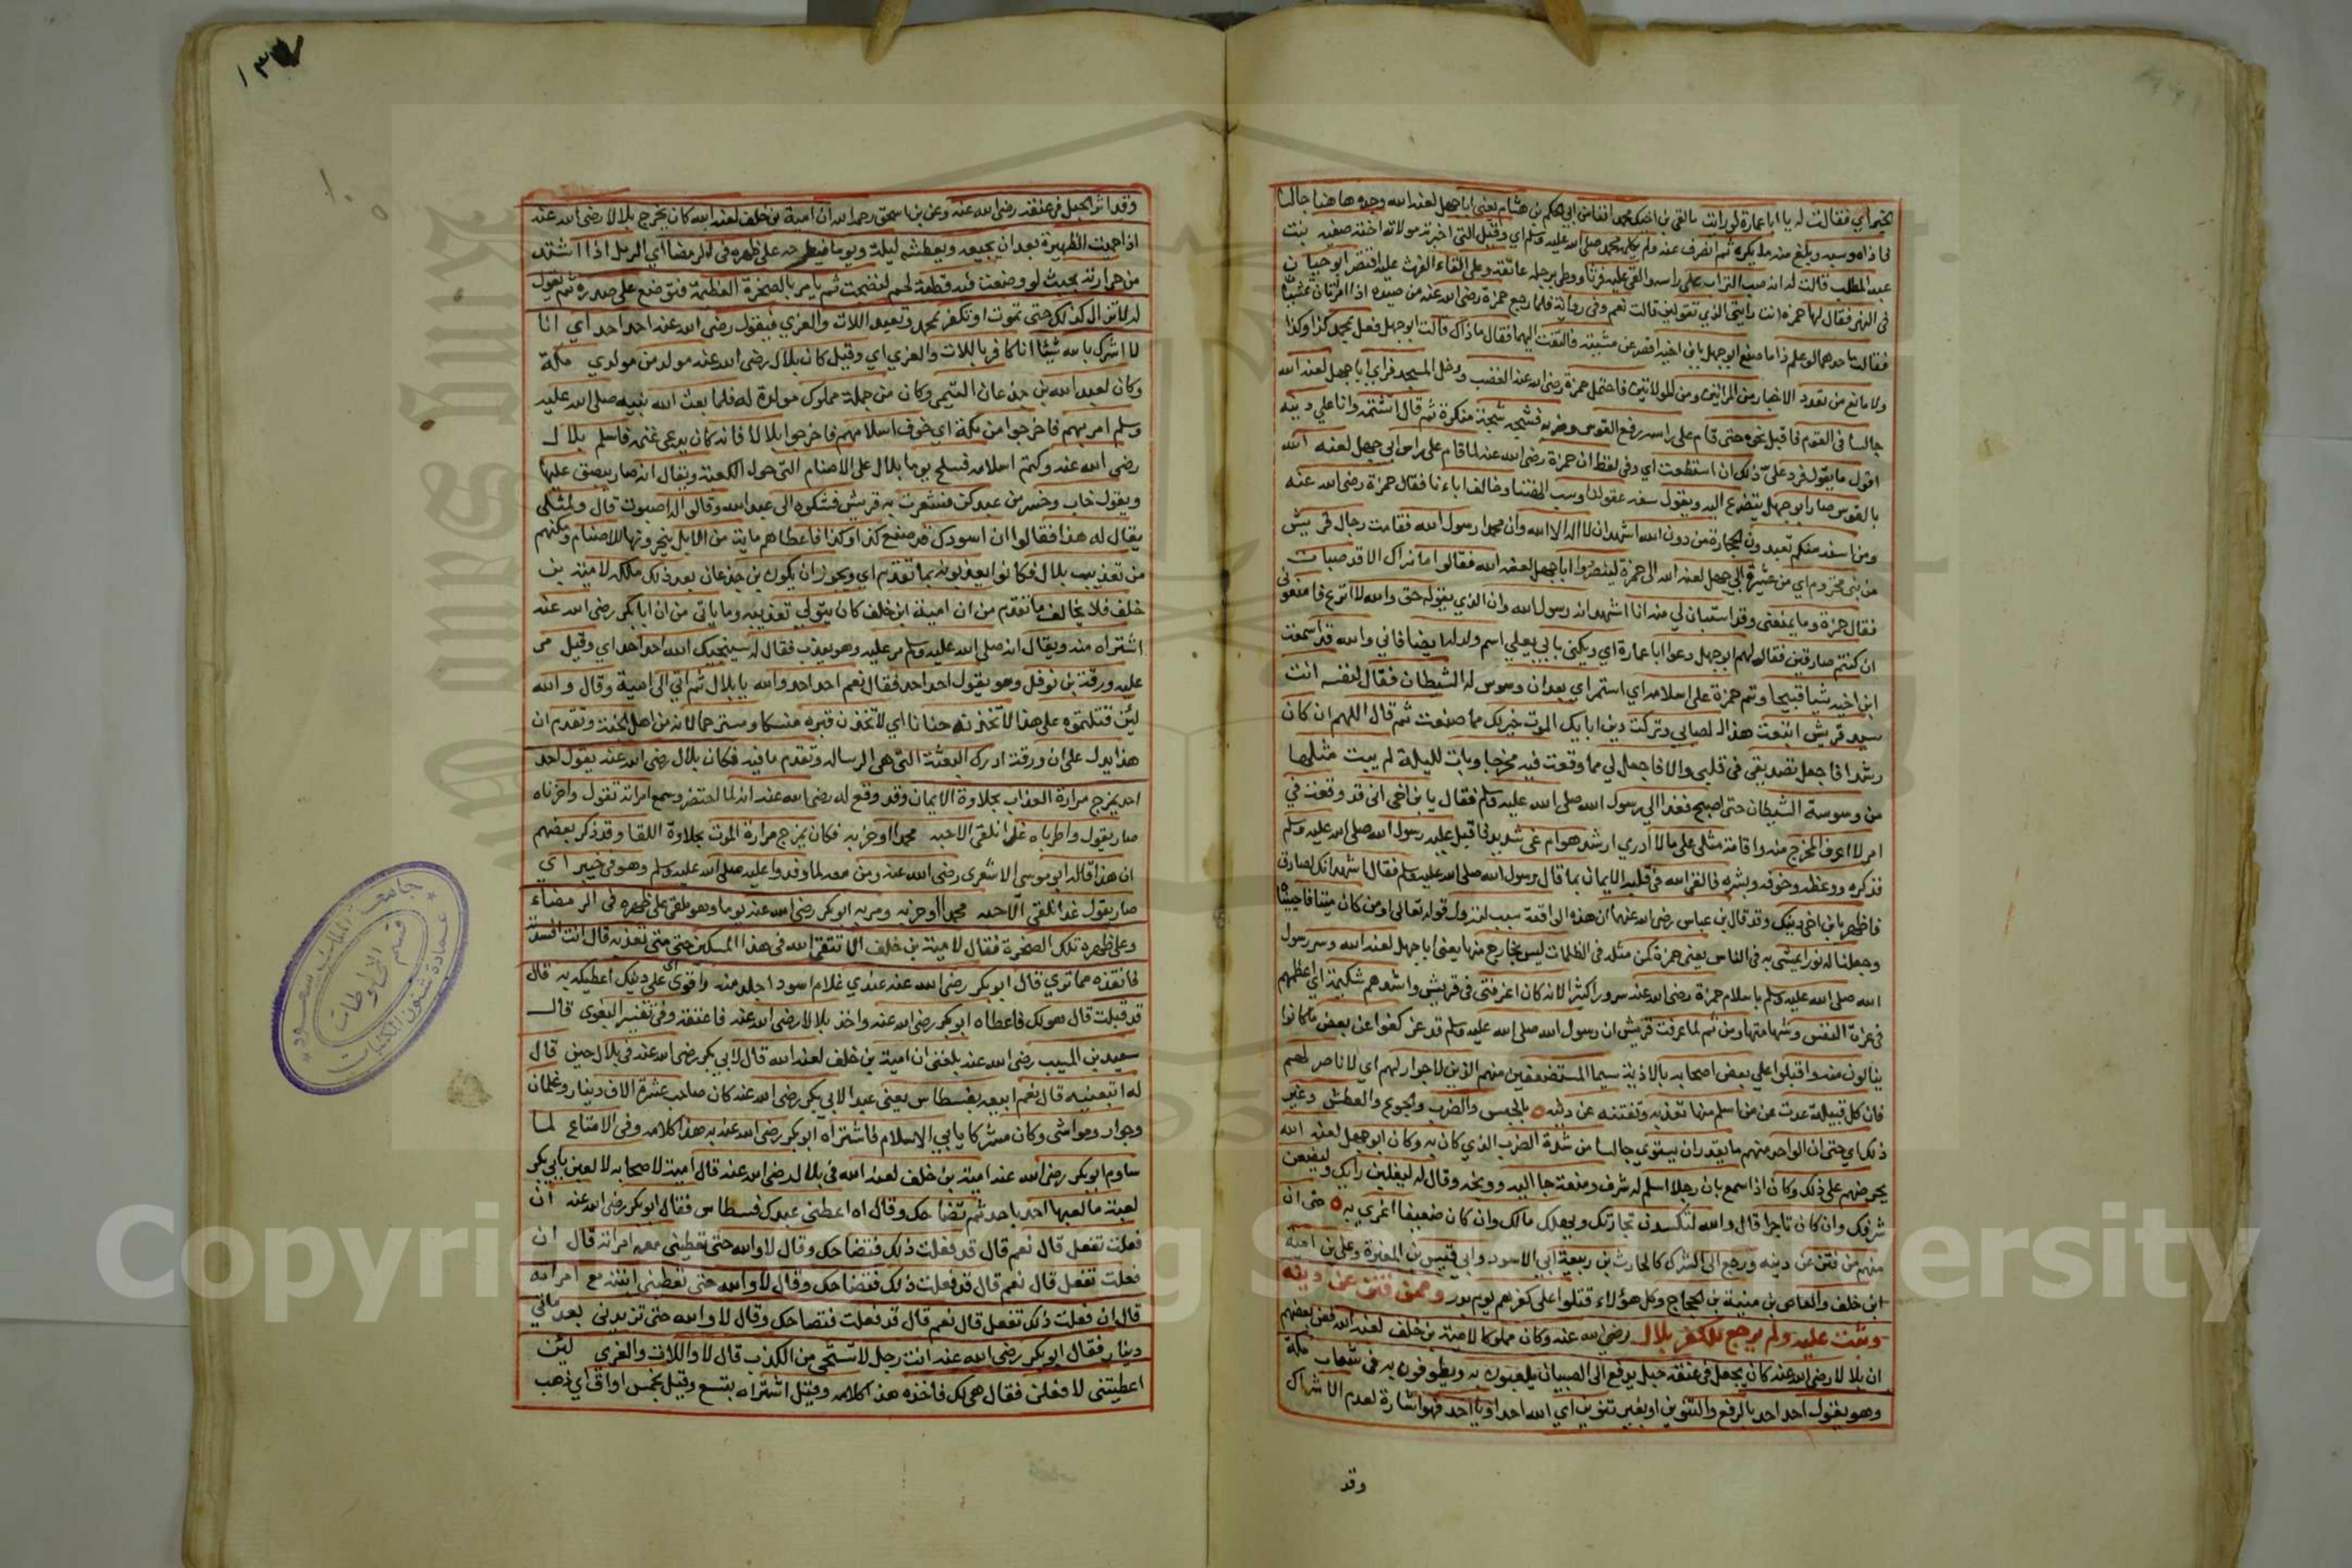 لخيراي فقالت له يا ابا عمارة لو رايت ما لقي بن اخيك محمد انفا من ابي الحكم بن هشام يعني ابا جهل لعنه الله وجده هاهنا جالسا
فاذاه وسبه وبلغ منه ما يكره ثم انصرف عنه ولم يكلمه محمد صلى الله عليه وسلم اي وقيل التي اخبرته مولاته اخته صفيه بنت
عبد المطلب قالت له انه صب التراب على راسه والقى عليه فرثا ووطي برجله عاتقه وعلى القاء الفرث عليه اقتصر ابو حيان
في النهر فقال لها حمزة انت رايتي الذي تقولين قالت نعم وفي رواية فلما رجع حمزة رضي الله عنه من صيده اذا امراتان تمشيان
فقالت احدهما لو علم ذا ما صنع ابو جهل بابن اخيه اقصر عن مشيته فالتفت اليهما فقال ما ذاك قالت ابو جهل فعل بمحمد كذا وكذا
ولا مانع من تعدد الاخبار من المراتين ومن المولاتين فاحتمل حمزة رضي الله عنه الغضب ودخل المسجد فراي ابا جهل لعنه الله
جالسا في القوم فاقبل نحوه حتى قام على راسه رفع القوس وضربه فشجه شجة منكرة ثم قال اتشتمه وانا على دينه
اقول ما يقول فرد على ذلك ان استطعت اي وفي لفظ ان حمزة رضي الله عنه لما قام على راس ابي جهل لعنه الله
بالقوس صار ابو جهل يتضرع اليه ويقول سفه عقولنا وسب الهتنا وخالف اباءنا فقال حمزة رضي الله عنه
ومن اسفه منكم تعبدون الحجارة من دون الله اشهد ان لا اله الا الله وان محمدا رسول الله فقامت رجال قريش
من بني مخزوم اي من عشيرة ابي جهل لعنه الله الى حمزة لينصروا ابا جهل لعنه الله فقالوا ما نراك الا قد صبات
فقال حمزة وما يمنعني وقد استبان لي منه انا اشهد انه رسول الله وان الذي يقوله حق والله لا انزع فامنعوني
ان كنتم صادقين فقال لهم ابو جهل دعوا ابا عمارة اي ويكنى بابي يعلي اسم ولد له ايضا فاني والله قد اسمعت
ابن اخيه شيا قبيحا وتم حمزة على اسلامه اي استمر اي بعد ان وسوس له الشيطان فقال لنفسه انت
سيد قريش اتبعت هذا الصابي وتركت دين ابايك الموت خير لك مما صنعت ثم قال اللهم ان كان
رشدا فاجعل تصديقي في قلبي والا فاجعل لي مما وقعت فيه مخرجا وبات لليلة لم يبت مثلها
من وسوسة الشيطان حتى اصبح فغدا الي رسول الله صلى الله عليه وسلم فقال يا بن اخي اني قد وقعت في
امر لا اعرف المخرج منه واقامة مثلي على ما لا ادري ارشد هو ام غي شديد فاقبل عليه رسول الله صلى الله عليه وسلم
فذكره ووعظه وخوفه وبشره فالقى الله في قلبه الايمان بما قال رسول الله صلى الله عليه وسلم فقال اشهد انك لصادق
فاظهر يا بن اخي دينك وقد قال بن عباس رضي الله عنهما ان هذه الواقعة سبب لنزول قوله تعالى اومن كان ميتا فاحييناه
وجعلنا له نورا يمشي به في الناس يعني حمزة كمن مثله في الظلمات ليس بخارج منها يعني ابا جهل لعنه الله وسر رسول
الله صلى الله عليه وسلم باسلام حمزة رضي الله عنه سرورا كثيرا لانه كان اعز فتى في قريش واشدهم شكيمة اي اعظمهم
في عزة النفس وشهامتها ومن ثم لما عرفت قريش ان رسول الله صلى الله عليه وسلم قد عز كفوا عن بعض ما كانوا
ينالون منه واقبلوا علي بعض اصحابه بالاذية سيما المستضعفين منهم الذين لا جوار لهم اي لا ناصر لهم
فان كل قبيلة عدت على من اسلم منها تعذبه وتفتنه عن دينه بالحبس والضرب والجوع والعطش وغير
ذلك اي حتى ان الواحد منهم ما يقدر ان يستوي جالسا من شدة الضرب الذي كان به وكان ابو جهل لعنه الله
يحرضهم على ذلك وكان اذا سمع بان رجلا اسلم له شرف ومنعة جا اليه ووبخه وقال له ليغلبن رايك وليضعفن
شرفك وان كان تاجرا قال والله لتكسدن تجارتك ويهلك مالك وان كان ضعيفا اغري به حتى ان
منهم من فتن عن دينه ورجع الى الشرك كالحارث بن ربيعة ابن الاسود وابي قيس بن المغيرة وعلي بن امية
ابن خلف والعاص بن منبه بن الحجاج وكل هؤلاء قتلوا على كفرهم يوم بدر وممن فتن عن دينه
وثبت عليه ولم يرجع للكفر بلال رضي الله عنه وكان مملوكا لامية بن خلف لعنه الله فعن بعضهم
ان بلالا رضي الله عنه كان يجعل في عنقه حبل يدفع الى الصبيان يلعبون به ويطوفون به في شعاب مكة
وهو يقول احد احد بالرفع والتنوين او بغير تنوين اي الله احد او يا احد فهو اشارة لعدم الاشراك
وقد
١٣٧
وقد اثر الحبل في عنقه رضي الله عنه وعن بن اسحق رحمه الله ان امية بن خلف لعنه الله كان يخرج بلالا رضي الله عنه
اذا حميت الظهيرة بعد ان يجيعه ويعطشه ليلة ويوما فيطرحه على ظهره في الرمضا اي الرمل اذا اشتد
من حرارته بحيث لو وضعت فيه قطعة لحم لنضجت ثم يامر بالصخرة العظيمة فتوضع على صدره ثم يقول
له لا تزال كذلك حتى تموت او تكفر بمحمد وتعبد اللات والعزي فيقول رضي الله عنه احد احد اي انا
لا اشرك بالله شيئا انا كافر باللات والعزي اي وقيل كان بلال رضي الله عنه مولد من مولدي مكة
وكان لعبد الله بن جذعان التيمي وكان من جملة مملوك مولدة له فلما بعث الله نبيه صلى الله عليه
وسلم امر بهم فاخرجوا من مكة اي خوف اسلامهم فاخرجوا بلالا فانه كان يرعى غنمه فاسلم بلال
رضي الله عنه وكتم اسلامه فسلح يوما بلال على الاصنام التي حول الكعبة ويقال انه صار يبصق عليها
ويقول خاب وخسر من عبدكن فشعرت به قريش فشكوه الى عبد الله وقالوا له اصبوت قال ومثلي
يقال له هذا فقالوا ان اسودك قد صنع كذا وكذا فاعطاهم ماية من الابل ينحرونها للاصنام ومكنهم
من تعذيب بلال فكانوا يعذبونه بما تقدم اي ويجوز ان يكون بن جذعان بعد ذلك ملكه لامية بن
خلف فلا يخالف ما تقدم من ان امية ابن خلف كان يتولي تعذيبه وما ياتي من ان ابا بكر رضي الله عنه
اشتراه منه ويقال انه صلى الله عليه وسلم مر عليه وهو يعذب فقال له سينجيك الله احد احد اي وقيل مر
عليه ورقة بن نوفل وهو يقول احد احد فقال نعم احد احد والله يا بلال ثم اتي الى امية وقال والله
لئن قتلتموه على هذا لاتخذنه حنانا اي لاتخذن قبره منسكا ومسترحما لانه من اهل الجنة وتقدم ان
هذا يدل على ان ورقة ادرك البعثة التي هي الرسالة وتقدم ما فيه فكان بلال رضي الله عنه يقول احد
احد يمزج مرارة العذاب بحلاوة الايمان وقد وقع له رضي الله عنه انه لما احتضر وسمع امراته تقول واحزناه
صار يقول واطرباه غدا نلقى الاحبه محمدا وحزبه فكان يمزج مرارة الموت بحلاوة اللقا وقد ذكر بعضهم
ان هذا قاله ابو موسى الاشعري رضي الله عنه ومن معه لما وفدوا عليه صلى الله عليه وسلم وهو في خيبر اي
صار يقول غدا نلقى الاحبه محمدا وحزبه ومر به ابو بكر رضي الله عنه يوما وهو ملقى على ظهره في الرمضاء
وعلى ظهره تلك الصخرة فقال لامية بن خلف الا تتقي الله في هذا المسكين حتى متى تعذبه قال انت افسدته
فانقذه مما تري قال ابو بكر رضي الله عنه عندي غلام اسود اجلد منه واقوى علي دينك اعطيكه به قال
قد قبلت قال هو لك فاعطاه ابو بكر رضي الله عنه واخذ بلالا رضي الله عنه فاعتقه وفي تفسير البغوي قال
سعيد بن المسيب رضي الله عنه بلغني ان امية بن خلف لعنه الله قال لابي بكر رضي الله عنه في بلال حين قال
له اتبعنيه قال نعم ابيعه بفسطاس يعني عبد الابي بكر رضي الله عنه كان صاحب عشرة الاف دينار وغلمان
وجوار ومواشي وكان مشركا يابي الاسلام فاشتراه ابو بكر رضي الله عنه به هذا كلامه وفي الامتاع لما
ساوم ابو بكر رضي الله عنه امية بن خلف لعنه الله في بلال رضي الله عنه قال امية لاصحابه لا لعبن بابي بكر
لعبة ما لعبها احد باحد ثم تضاحك وقال اه اعطني عبدك فسطاس فقال ابو بكر رضي الله عنه ان
فعلت تفعل قال نعم قال قد فعلت ذلك فتضاحك وقال لا والله حتى تعطيني معه امراته قال ان
فعلت تفعل قال نعم قال قد فعلت ذلك فتضاحك وقال لا والله حتى تعطيني ابنته مع امراته
قال ان فعلت ذلك تفعل قال نعم قال قد فعلت فتضاحك وقال لا والله حتى تزيدني بعد مائتي
دينار فقال ابو بكر رضي الله عنه انت رجل لا تستحي من الكذب قال لا واللات والعزي لئن
اعطيتني لا فعلن فقال هي لك فاخذه هذا كلامه وقيل اشتراه بتسع وقيل بخمس اواق اي ذهب
جامعة الملك سعود
عمادة شئون المكتبات
قسم المخطوطات
Copyright © King Saud University